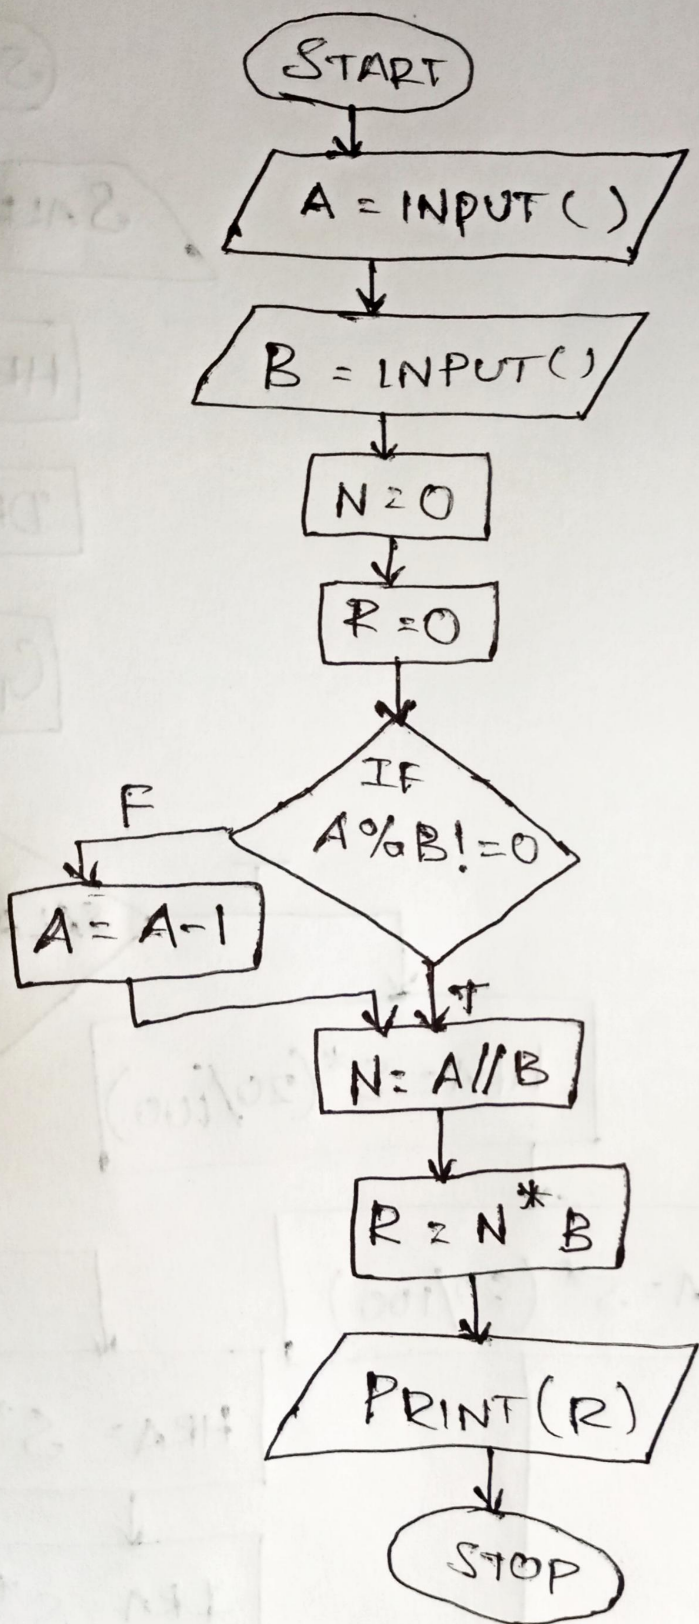 START
A = INPUT ( )
B = INPUT ( )
N = 0
R = 0
IF
A % B ! = 0
F
A = A - 1
T
N = A // B
R = N * B
PRINT (R)
STOP